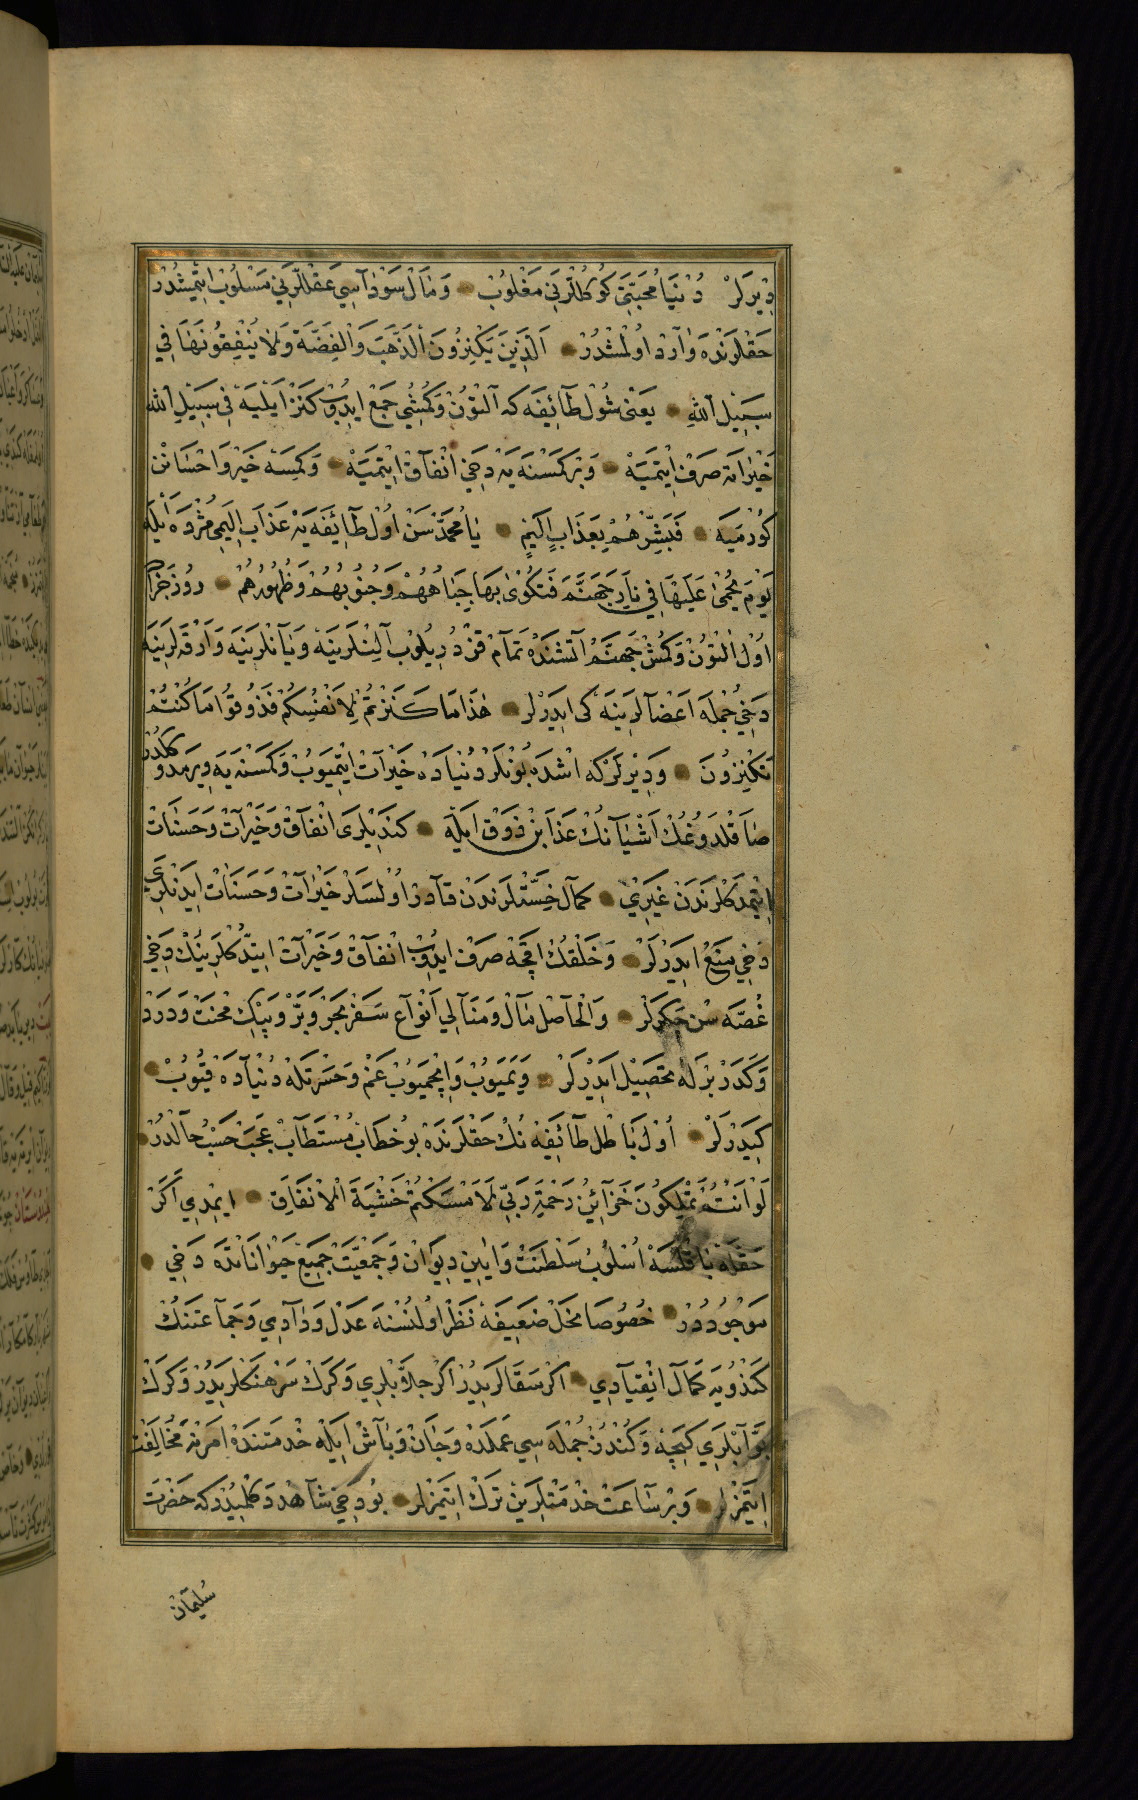 دِيرلَرْ دُنْيَا مُحَبَّتِى كُوكُللَرِنِي مَغْلُوبْ وَمَالْ سَوْدَاسِي عَقْللَرِنِي مَسْلُوبْ اِتْمِشْدُرْ
حَقْلَرَنْدَه وَارِدْ اُولْمِشْدُرْ اَلَّذِينَ يَكْنِزُونَ الذَّهَبَ وَالْفِضَّةَ وَلَا يُنْفِقُونَهَا فِي
سَبِيلِ اللّٰهِ يَعْنِى شُولْ طَائِفَه كه آلْتُونْ وَكُمُشِي جَمْع ايدُوبْ كَنْز اَيْلَيَه فِي سَبِيلِ اللّٰه
خَيْرَاتَه صَرْفْ اِيتْمَيَه وَبِرْ كِمْسَنَه يَه دَخِي اِنْفَاقْ اِيتْمَيَه وَكِمْسَه خَيْر وَاحْسَانِنْ
كُورْمَيَه فَبَشِّرْهُمْ بِعَذَابٍ اَلِيمٍ يَا مُحَمَّدْ سَنْ اُولْ طَائِفَه يَه عَذَابِ اَلِيمِي مُژْدَه اَيْلَه
يَوْمَ يُحْمٰى عَلَيْهَا فِي نَارِ جَهَنَّمَ فَتُكْوٰى بِهَا جِبَاهُهُمْ وَجُنُوبُهُمْ وَظُهُورُهُمْ رُوزِ جَزَا
اُولْ آلْتُونْ وَكُمُشْ جَهَنَّمْ آتَشَنْدَه تَمَامْ قِزْدُرِيلُوبْ آلِنْلَرِينَه وَيَانْلَرِينَه وَآرْقَه لَرِينَه
دَخِي جُمْلَه اَعْضَالَرِينَه كَى ايدَرْلَر هٰذَا مَا كَنَزْتُمْ لِاَنْفُسِكُمْ فَذُوقُوا مَا كُنْتُمْ
تَكْنِزُونَ وَدِيرْلَرْ كه اشْدَه بُونْلَرْ دُنْيَادَه خَيْرَاتْ اِيتْمَيُوبْ وَكِمْسَنَه يَه وِيرْمَدُوكْلَرُكُزْ
صَاقْلَدُوغُكْ اَشْيَانُكْ عَذَابِنْ ذَوْق اَيْلَه كَنْدِيلَرِى اِنْفَاقْ وَخَيْرَاتْ وَحَسَنَاتْ
اِيتْمَدُكْلَرَنْدَنْ غَيْرِي كَمَالِ خِسَّتْلَرِنْدَنْ قَادِرْ اُولْسَلَرْ خَيْرَاتْ وَحَسَنَاتْ ايدَنْلَرِي
دَخِي مَنْعْ ايدَرْلَرْ وَخَلْقُكْ اَقْچَه صَرْفْ ايدُوبْ اِنْفَاقْ وَخَيْرَاتْ اِيتْدُكْلَرِينُكْ دَخِي
غُصَّه سِنْ چَكَرْلَرْ وَالْحَاصِلْ مَالْ وَمَنَالِي اَنْوَاعِ سَفَرِ بَحْر وَبَرّ وَبِيكْ مِحْنَتْ وَدَرْدْ
وَكَدَرْ بِرْلَه تَحْصِيلْ ايدَرْلَرْ وَيَمَيُوبْ وَاِيچْمَيُوبْ غَمْ وَحَسْرَتْلَه دُنْيَادَه قُيُوبْ
كِيدَرْلَرْ اُولْ بَاطِلْ طَائِفَه نُكْ حَقْلَرِنْدَه بُو خِطَابِ مُسْتَطَابْ عَجَبْ حَسْبِ حَالْدُرْ
لَوْ اَنْتُمْ تَمْلِكُونَ خَزَائِنَ رَحْمَةِ رَبِّي لَاَمْسَكْتُمْ خَشْيَةَ الْاِنْفَاقِ ايمْدِي اَكَرْ
حَقْلَه بَاقِلْسَه اُسْلُوبِ سَلْطَنَتْ وَآيِينِ دِيوَانْ وَجَمْعِيَّتْ جَمِيعِ حَيْوَانَاتْدَه دَخِي
مَوْجُودْدُرْ خُصُوصَا نَحْلِ ضَعِيفَه نَظَرْ اُولُنْسَه عَدْلْ وَدَادِي وَجَمَاعَتِنُكْ
كَنْدُويَه كَمَالِ اِنْقِيَادِي اَكَرْ سَقَالَرِيدُرْ اَكَرْ جَلَّابْلَرِي وَكَرَكْ سَرْهَنْكْلَرِيدُرْ وَكَرَكْ
بَوَّابْلَرِي كِيجَه وَكُنْدُزْ جُمْلَه سِي عَمَلْدَه وَجَانْ وَبَاشْ ايلَه خِدْمَتِنْدَه اَمْرِنَه مُخَالَفَتْ
اِيتْمَزْلَرْ وَبِرْ سَاعَتْ خِدْمَتْلَرِينْ تَرْكْ اِيتْمَزْلَر بُو دَخِي مُشَاهَدَه كَلْمِيشْدُرْ كه حَضْرَتِ
سُلَيْمَانْ